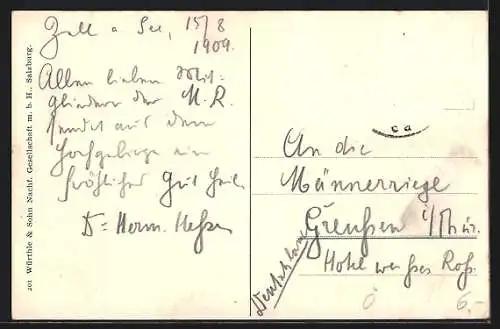 Zell a See, 15/8
1909.
Allen lieben Mit-
gliedern der M. R.
sendet aus dem
Hochgebirge ein
fröhliches Gut Heil
Dr. Herm.
An die
Männerriege
Greußen i/Thür.
Hotel weisses Roß
Deutschland
6,-
201 Würthle & Sohn Nachf. Gesellschaft m. b. H., Salzburg.